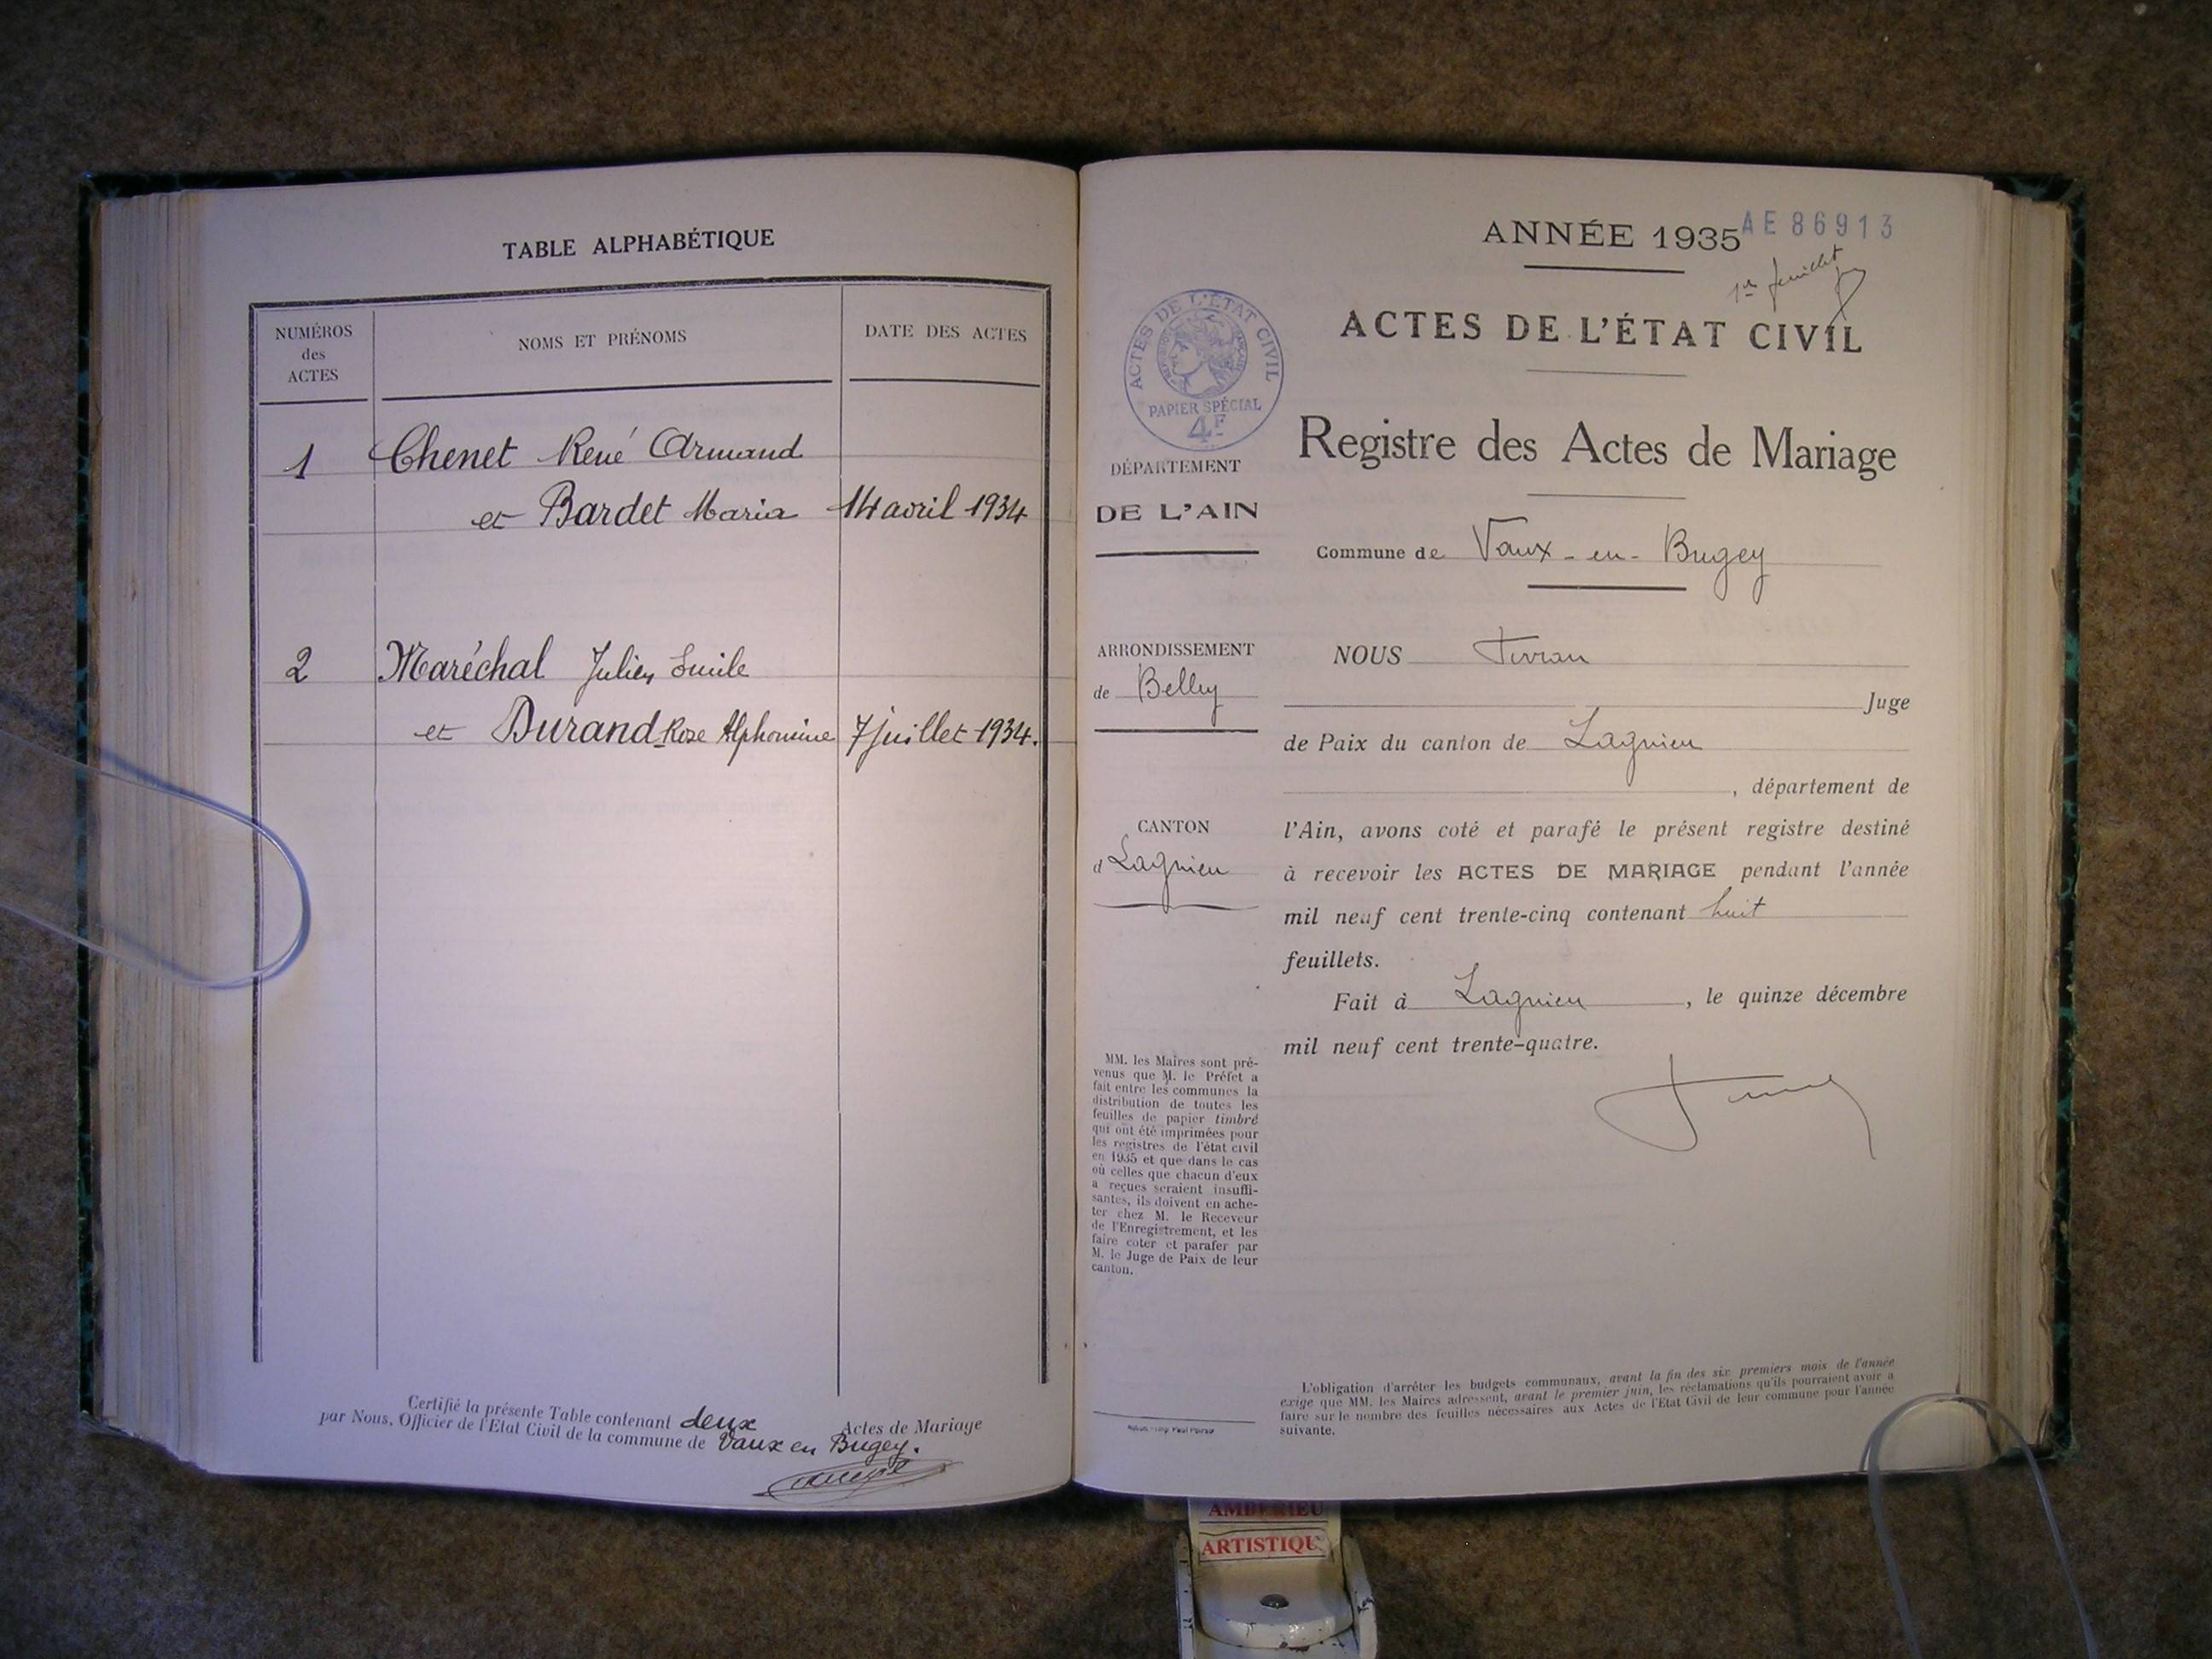 TABLE ALPHABÉTIQUE
NUMÉROS
des
ACTES
NOMS ET PRÉNOMS
DATE DES ACTES
1 Chenet René Armand
et Bardet Maria 14 avril 1934
2 Maréchal Julien Emile
et Durand Rose Alphonsine 7 juillet 1934.
Certifié la présente Table contenant deux Actes de Mariage
par Nous, Officier de l'Etat Civil de la commune de Vaux en Bugey.
ANNÉE 1935
AE 86913
1er feuillet
ACTES DE L'ÉTAT CIVIL
Registre des Actes de Mariage
Commune de Vaux-en-Bugey
ACTES DE L'ÉTAT CIVIL
PAPIER SPÉCIAL
4F
DÉPARTEMENT
DE L'AIN
ARRONDISSEMENT
de Belley
CANTON
d Lagnieu
MM. les Maires sont pré-
venus que M. le Préfet a
fait entre les communes la
distribution de toutes les
feuilles de papier timbré
qui ont été imprimées pour
les registres de l'état civil
en 1935 et que dans le cas
où celles que chacun d'eux
a reçues seraient insuffi-
santes, ils doivent en ache-
ter chez M. le Receveur
de l'Enregistrement, et les
faire coter et parafer par
M. le Juge de Paix de leur
canton.
NOUS
Juge
de Paix du canton de Lagnieu
, département de
l'Ain, avons coté et parafé le présent registre destiné
à recevoir les ACTES DE MARIAGE pendant l'année
mil neuf cent trente-cinq contenant huit
feuillets.
Fait à Lagnieu, le quinze décembre
mil neuf cent trente-quatre.
L'obligation d'arrêter les budgets communaux, avant la fin des six premiers mois de l'année
exige que MM. les Maires adressent, avant le premier juin, les réclamations qu'ils pourraient avoir à
faire sur le nombre des feuilles nécessaires aux Actes de l'Etat Civil de leur commune pour l'année
suivante.
AMBERIEU
ARTISTIQU